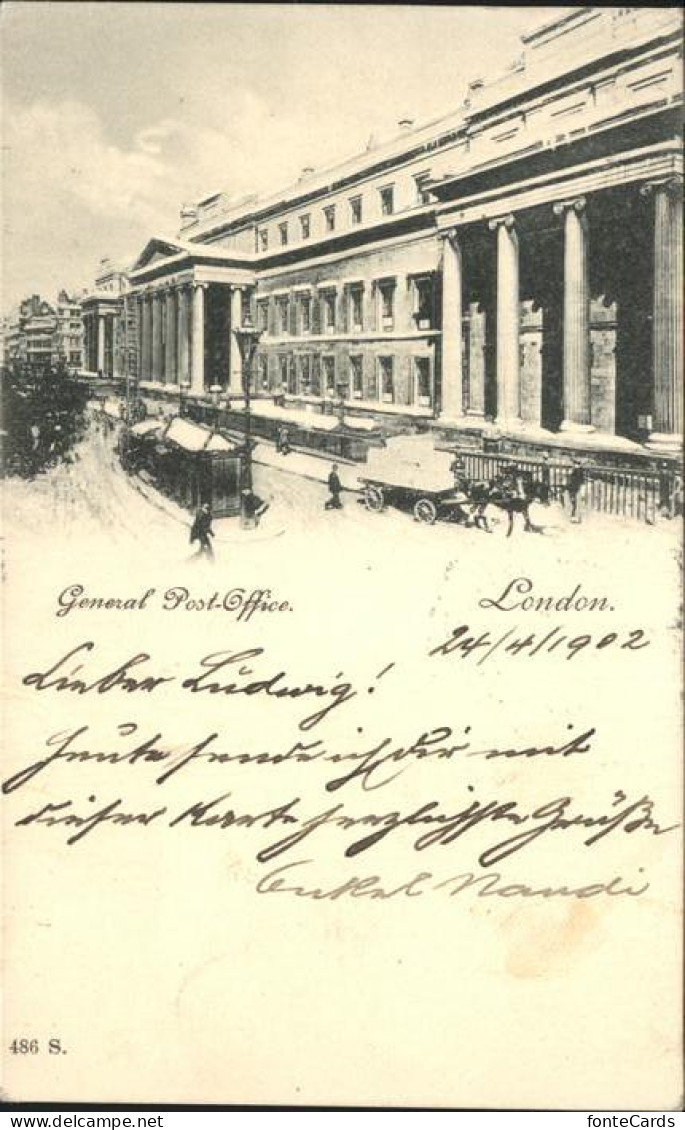 General Post-Office.
London.
24/4/1902
Lieber Ludwig!
Heute sende ich Dir mit
dieser Karte herzlichste Grüße
Onkel Nandi
486 S.
fonteCards